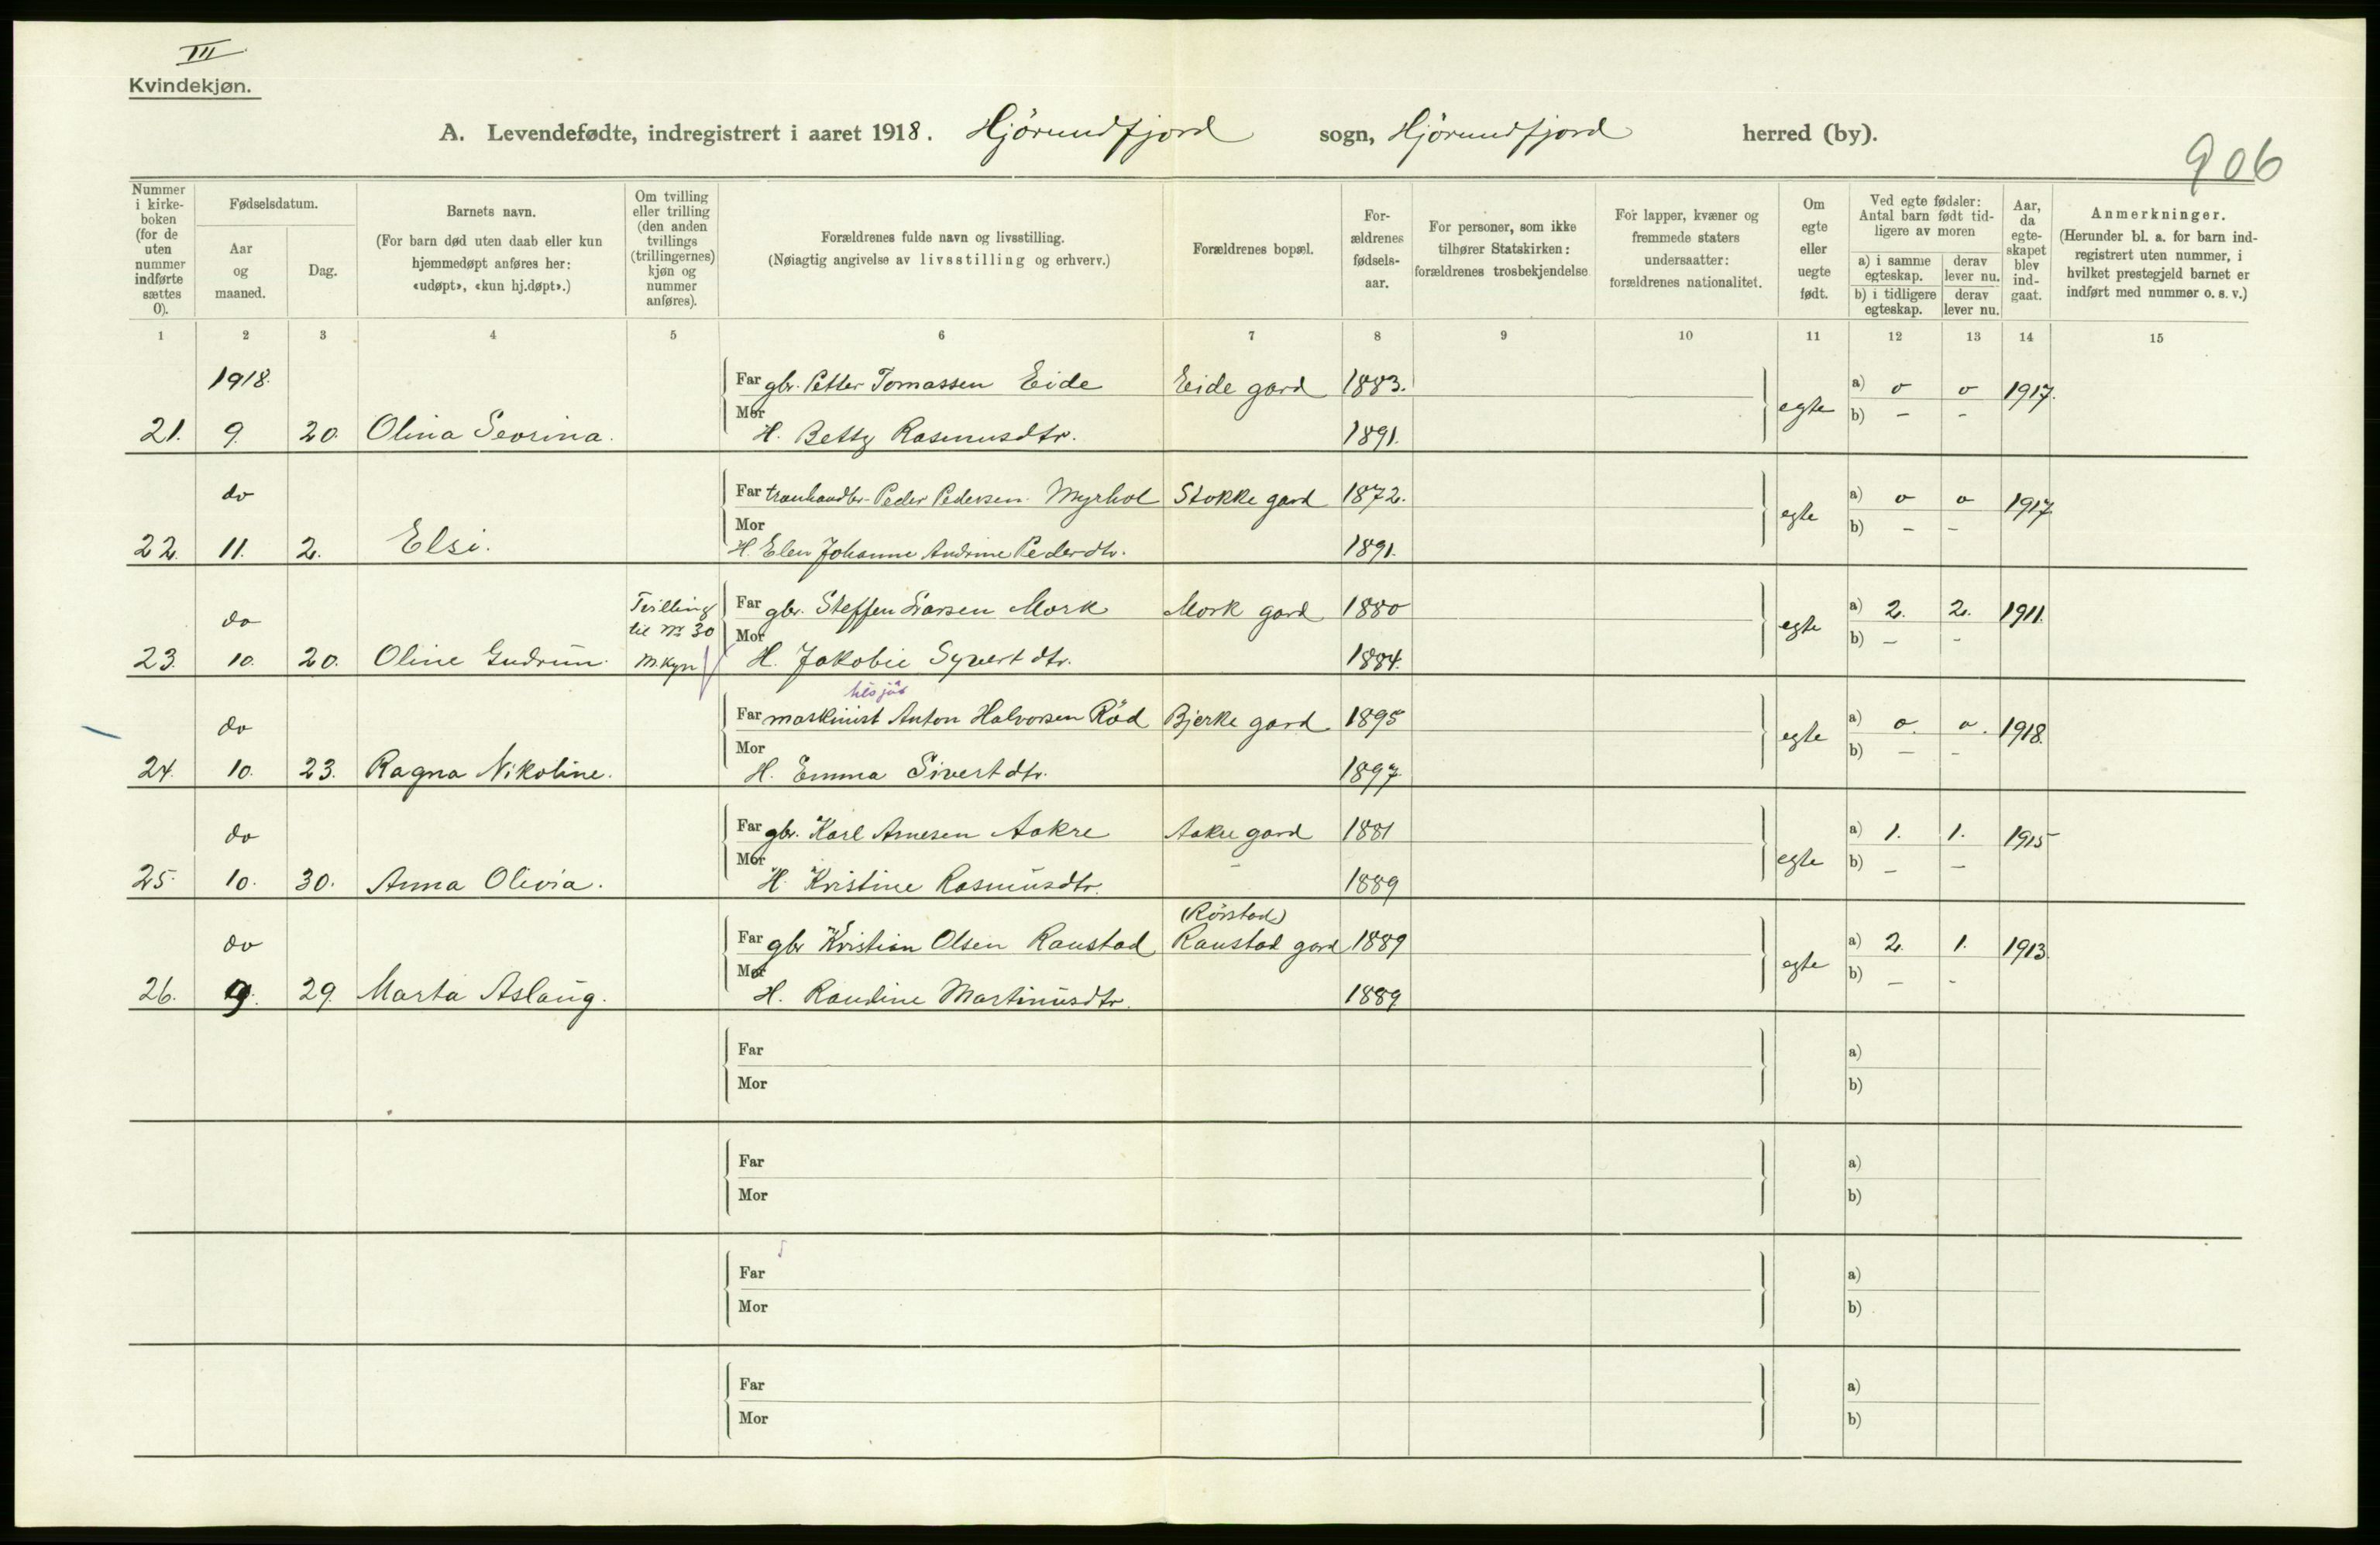 III
Kvindekjøn.
A. Levendefødte, indregistrert i aaret 1918. Hjörundfjord sogn, Hjörundfjord herred (by).
906
Nummer i kirke-boken (for de uten nummer indførte sættes 0).
Fødselsdatum.
Aar og maaned.
Dag.
Barnets navn.
(For barn død uten daab eller kun hjemmedøpt anføres her: «udøpt», «kun hj.døpt».)
Om tvilling eller trilling (den anden tvillings (trillingernes) kjøn og nummer anføres).
Forældrenes fulde navn og livsstilling.
(Nøiagtig angivelse av livsstilling og erhverv.)
Forældrenes bopæl.
For-ældrenes fødsels-aar.
For personer, som ikke tilhører Statskirken: forældrenes trosbekjendelse
For lapper, kvæner og fremmede staters undersaatter: forældrenes nationalitet.
Om egte eller uegte født.
Ved egte fødsler: Antal barn født tid-ligere av moren
a) i samme egteskap. derav lever nu.
b) i tidligere egteskap. derav lever nu.
Aar, da egte-skapet blev ind-gaat.
Anmerkninger.
(Herunder bl. a. for barn ind-registrert uten nummer, i hvilket prestegjeld barnet er indført med nummer o. s. v.)
1 2 3 4 5 6 7 8 9 10 11 12 13 14 15
1918. Far gbr. Petter Tomassen Eide Eide gard 1883. egte a) o o 1917.
21. 9. 20. Olina Sevrina. Mor H. Betty Rasmusdtr. 1891. b) – –
do Far tranhandler Peder Pedersen Myrhol Stokke gard 1872. egte a) o o 1917
22. 11. 2. Elsi. Mor H. Elen Johanne Andrine Pederdtr. 1891. b) – –
do Tvilling til No 30 Far gbr. Steffen Larsen Mork Mork gard 1880 egte a) 2. 2. 1911.
23. 10. 20. Oline Gudrun. M.kyn Mor H. Jakobie Syvertdtr. 1884. b) – –
do Far maskinist Anton Halvorsen Röd Bjerke gard 1895 egte a) o. o. 1918.
24. 10. 23. Ragna Nikoline. Mor H. Emma Sivertdtr. 1897 b) – –
do Far gbr. Karl Arnesen Aakre Aakre gard 1881 egte a) 1. 1. 1915
25. 10. 30. Anna Olivia. Mor H. Kristine Rasmusdtr. – 1889 b) – –
(Rörstad)
do Far gbr Kristian Olsen Raustad Raustad gard 1889 egte a) 2. 1. 1913.
26. 9. 29. Marta Aslaug. Mor H. Raudine Martinusdtr. 1889 b) – -
Far a)
Mor b)
Far a)
Mor b)
Far a)
Mor b)
Far a)
Mor b)